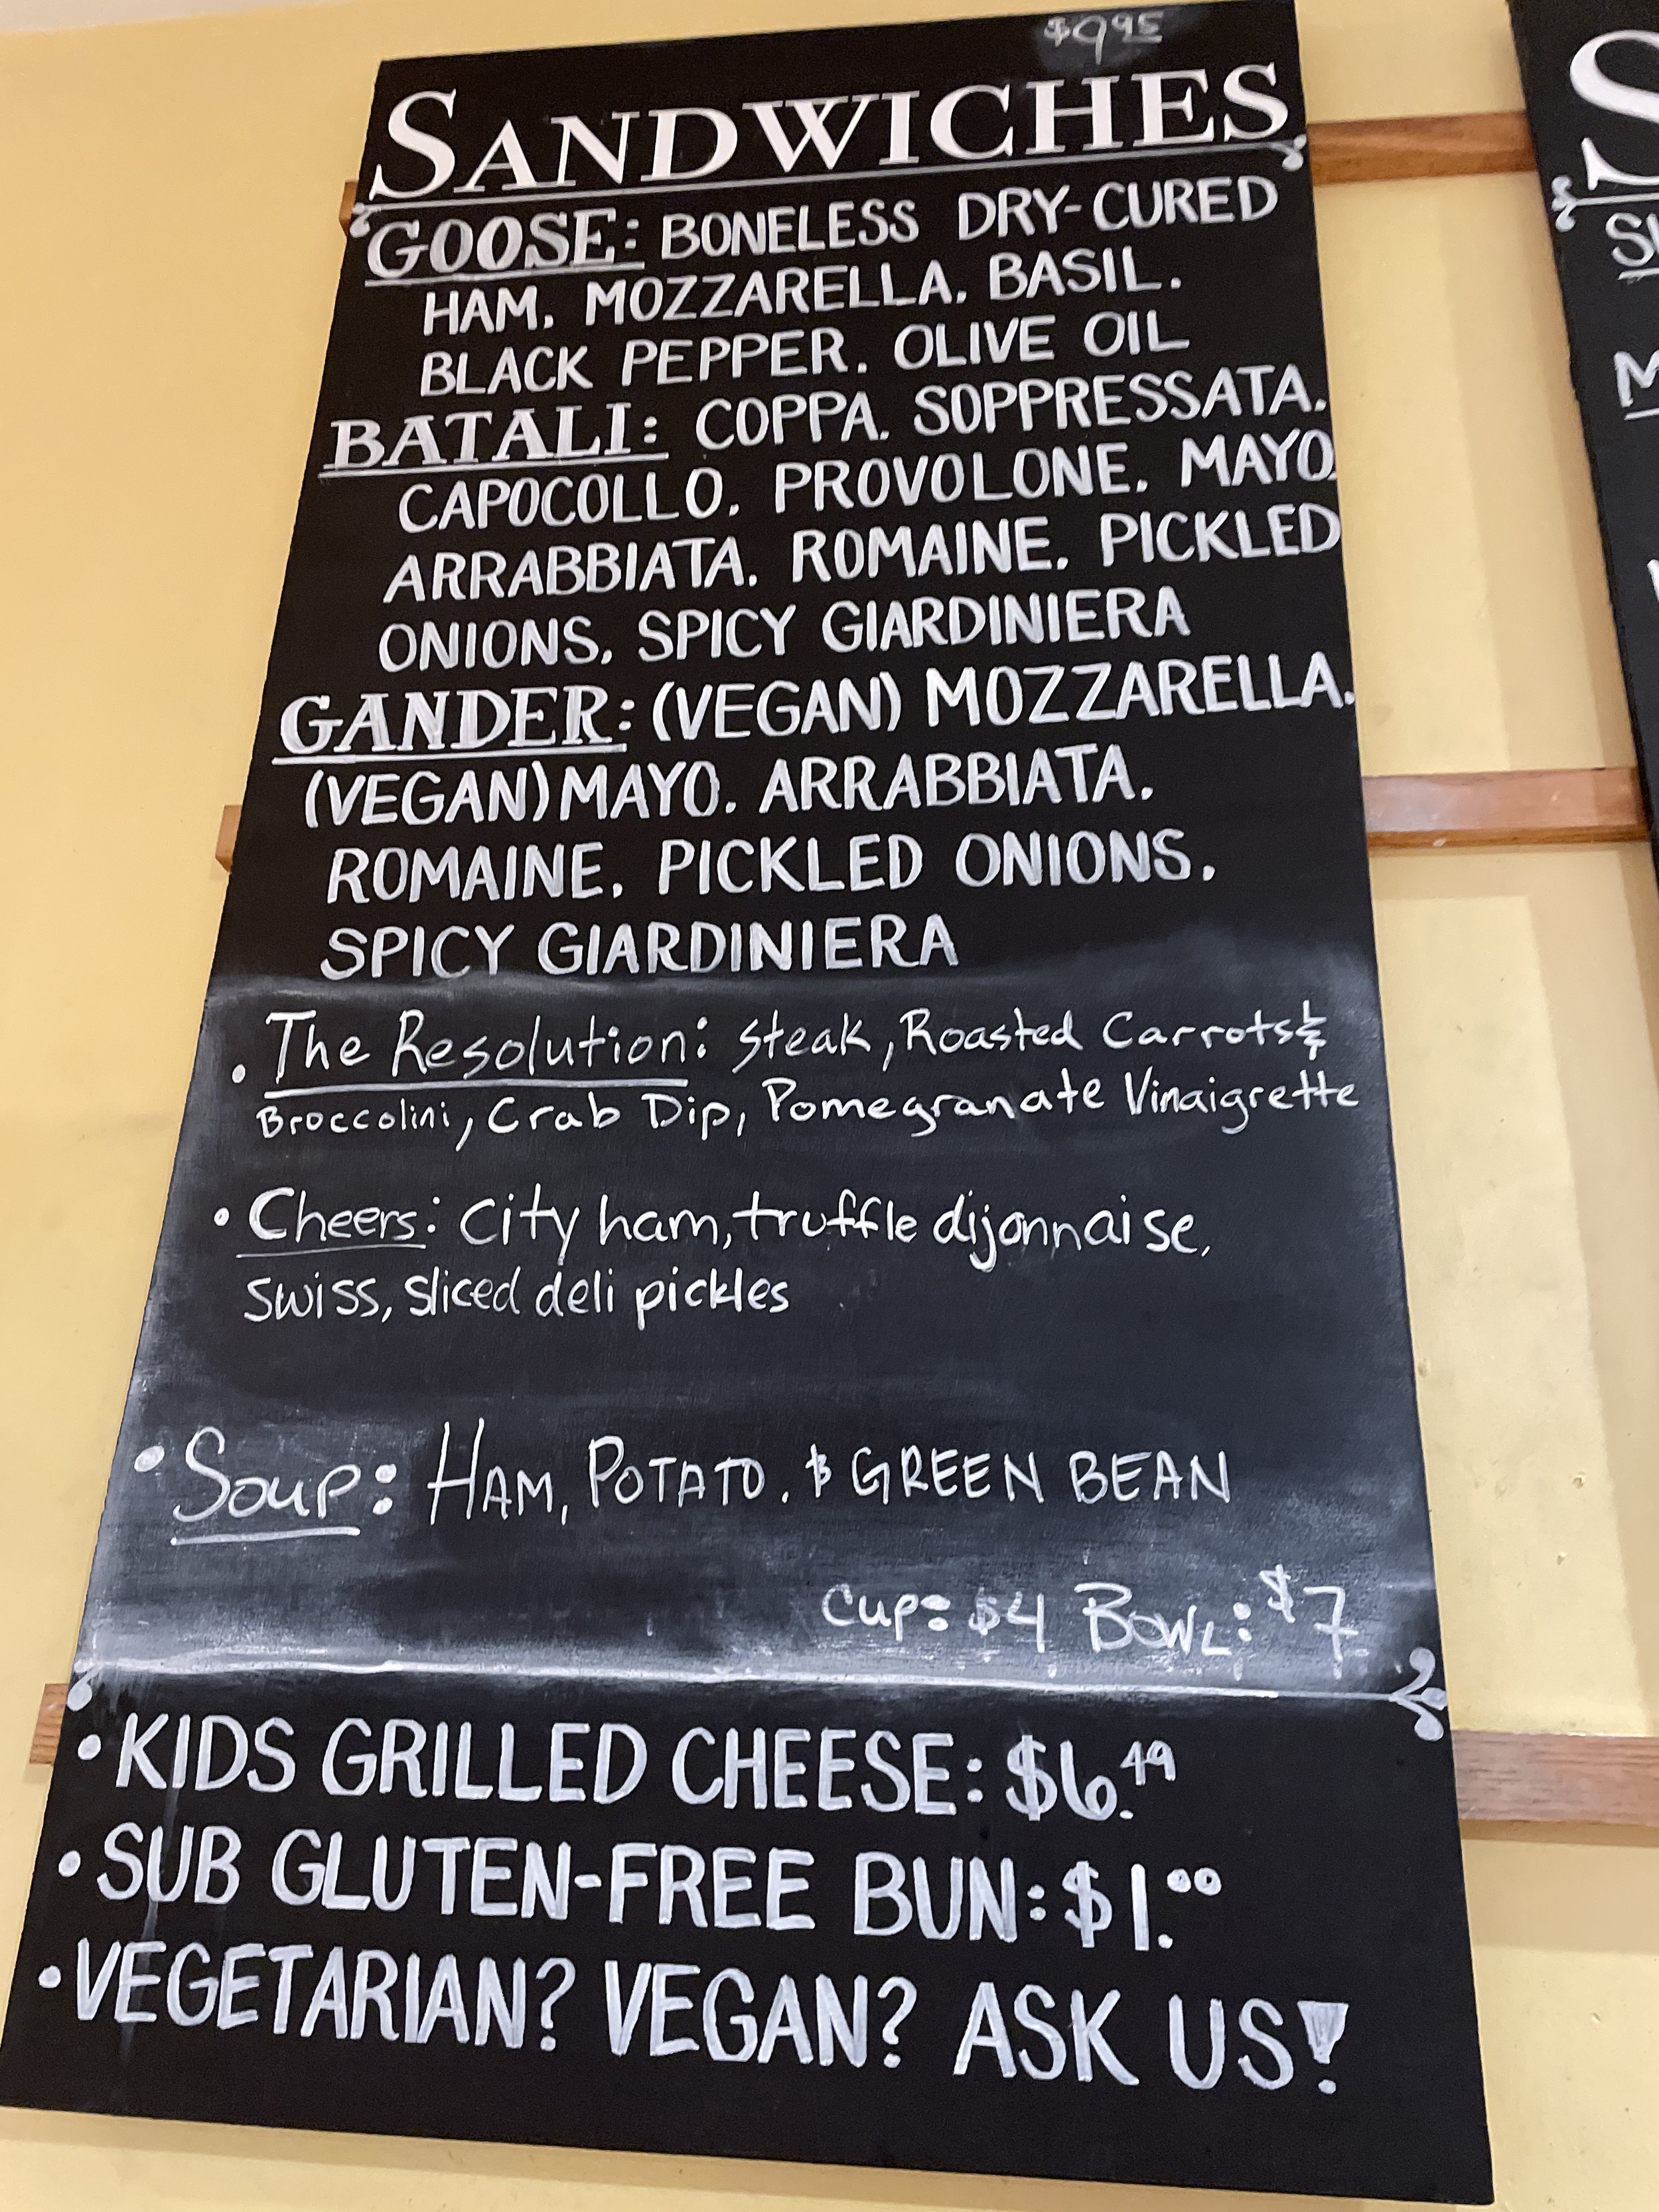 $9.95
SANDWICHES
GOOSE: BONELESS DRY-CURED
HAM. MOZZARELLA. BASIL.
BLACK PEPPER. OLIVE OIL
BATALI: COPPA. SOPPRESSATA.
CAPOCOLLO. PROVOLONE. MAYO.
ARRABBIATA. ROMAINE. PICKLED
ONIONS. SPICY GIARDINIERA
GANDER: (VEGAN) MOZZARELLA.
(VEGAN) MAYO. ARRABBIATA.
ROMAINE. PICKLED ONIONS.
SPICY GIARDINIERA
• The Resolution: Steak, Roasted Carrots &
Broccolini, Crab Dip, Pomegranate Vinaigrette
• Cheers: City ham, truffle dijonnaise,
Swiss, sliced deli pickles
• Soup: HAM, POTATO, & GREEN BEAN
Cup: $4 BOWL: $7
• KIDS GRILLED CHEESE: $6.49
• SUB GLUTEN-FREE BUN: $1.00
• VEGETARIAN? VEGAN? ASK US!